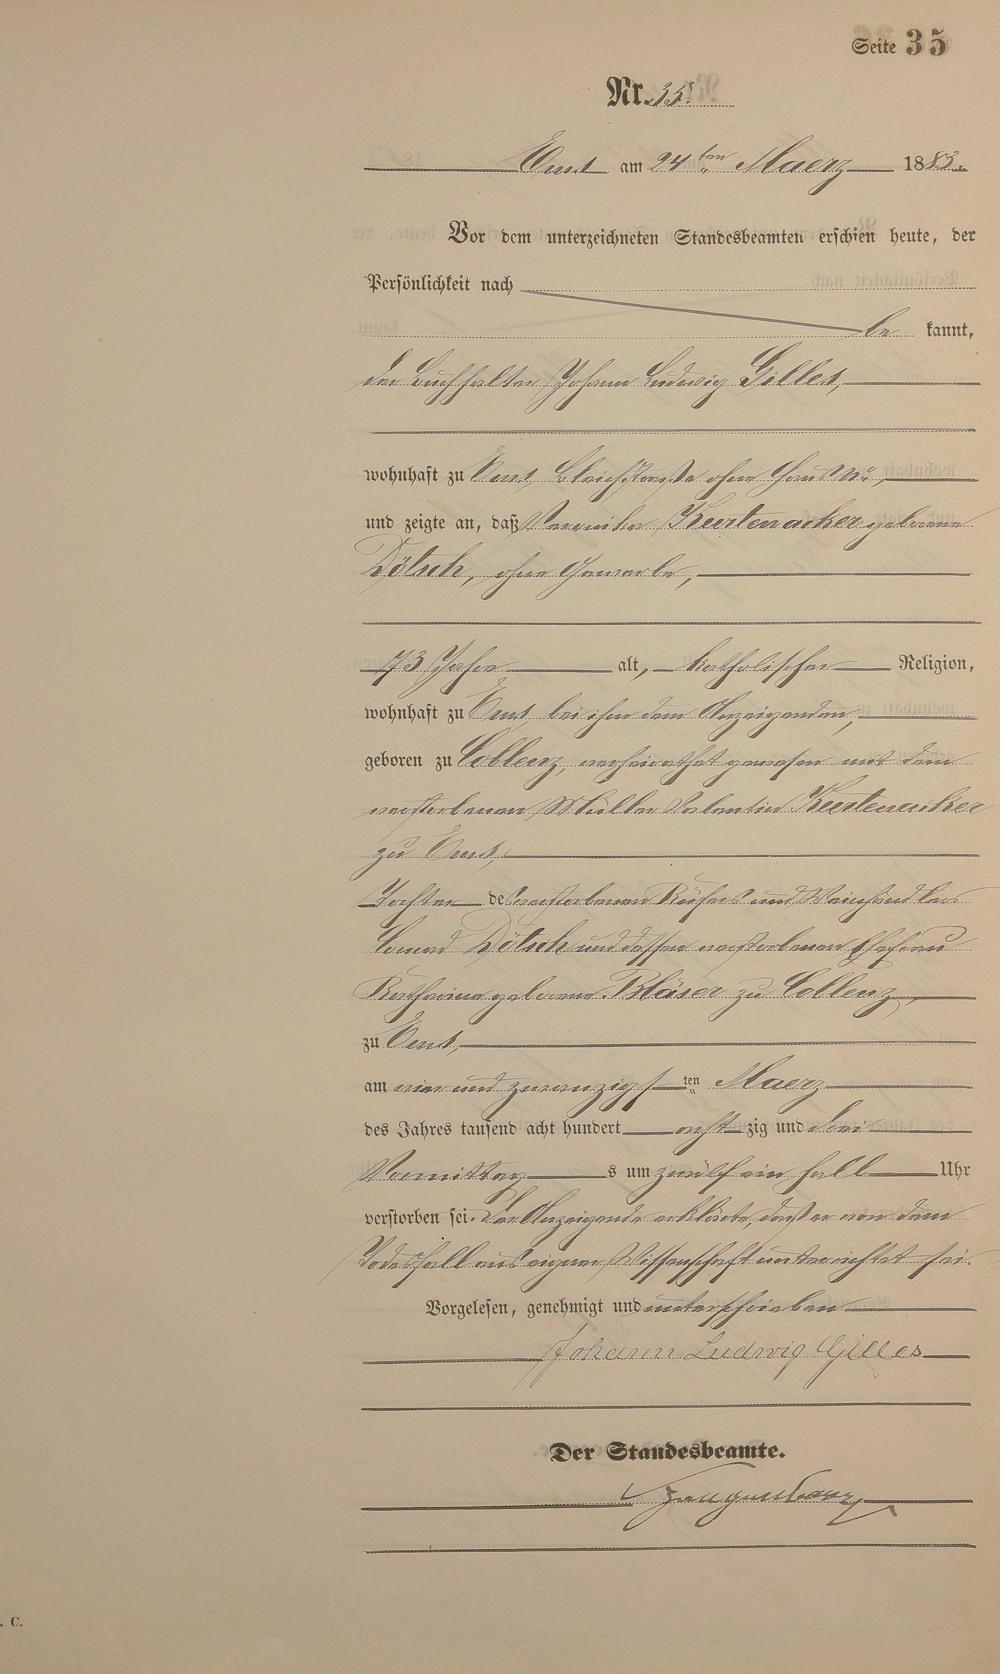 Seite 35
Nr. 35.
Ems am 24ten Maerz 1883.
Vor dem unterzeichneten Standesbeamten erschien heute, der
Persönlichkeit nach
be kannt,
der Buchhalter Johann Ludwig Gilles,
wohnhaft zu Ems, Bleichstraße ohne Haus No,
und zeigte an, daß Veronika Kurtenacker geborene
Dötsch, ohne Gewerbe,
73 Jahre alt, katholischer Religion,
wohnhaft zu Ems, bei ihm dem Anzeigenden,
geboren zu Coblenz, verheirathet gewesen mit dem
verstorbenen Müller Valentin Kurtenacker
zu Ems,
Tochter des verstorbenen Küfers und Weinhändlers
Conrad Dötsch und dessen verstorbenen Ehefrau
Katharina geborene Bläser zu Coblenz,
zu Ems,
am vier und zwanzigsten Maerz
des Jahres tausend acht hundert achtzig und drei
Vormittags um zwölf ein halb Uhr
verstorben sei. Der Anzeigende erklärte, daß er von dem
Todesfall aus eigner Wissenschaft unterrichtet sei.
Vorgelesen, genehmigt und unterschrieben
Johann Ludwig Gilles
Der Standesbeamte.
. C.